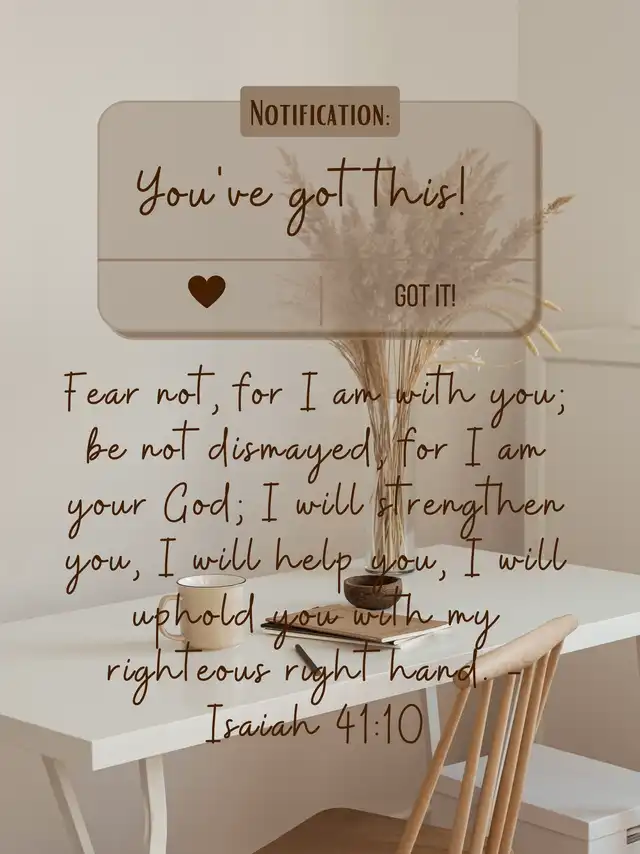 NOTIFICATION:
You've got this!
GOT IT!
Fear not, for I am with you;
be not dismayed, for I am
your God; I will strengthen
you, I will help you, I will
uphold you with my
righteous right hand. -
Isaiah 41:10